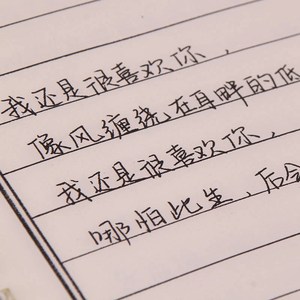 我还是很喜欢你，
像风缠绕在耳畔的低
我还是很喜欢你，
哪怕此生，后会